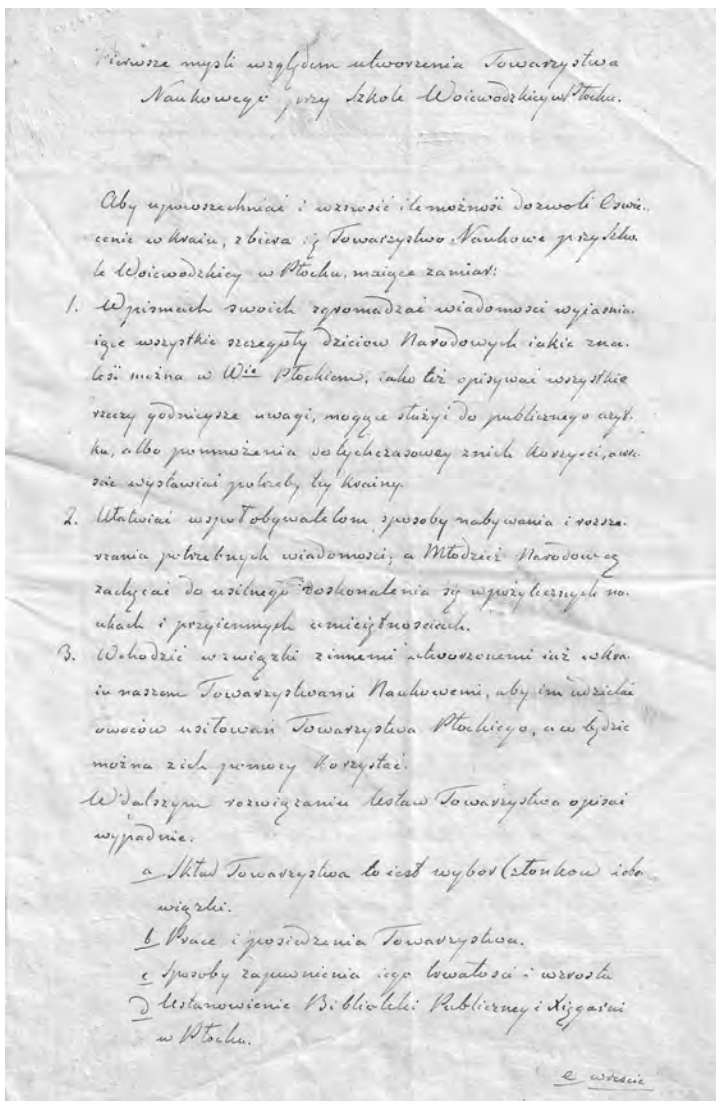 Pierwsze mysli względem utworzenia Towarzystwa
Naukowego przy Szkole Woiewodzkiey w Płocku.
Aby upowszechniać i wznosić ile możność dozwoli Oświe-
cenie w Kraiu, zbiera się Towarzystwo Naukowe przy Szko-
le Woiewodzkiey w Płocku, maiące zamiar:
1. W pismach swoich zgromadzać wiadomości wyiaśnia-
iące wszystkie szczegóły dzieiów Narodowych iakie zna-
leść można w Wie Płockiem, iako też opisywać wszystkie
rzeczy godnieysze uwagi, mogące służyć do publicznego użyt-
ku, albo pomnożenia dotychczasowey z nich korzyści, a wre-
ście wystawiać potrzeby tey krainy.
2. Ułatwiać współobywatelom sposoby nabywania i rozsze-
rzania potrzebnych wiadomości, a Młodzież Narodową
zachęcać do usilnego doskonalenia się w pożytecznych na-
ukach i przyiemnych umieiętnościach.
3. Wchodzić w związki z innemi utworzonemi iuż w kra-
iu naszem Towarzystwami Naukowemi, aby im udzielać
owoców usiłowań Towarzystwa Płockiego, a w będzie
można z ich pomocy korzystać.
W dalszym rozwiązaniu Ustaw Towarzystwa opisać
wypadnie.
a Skład Towarzystwa to iest wybor Członkow i obo-
wiązki.
b Prace i posiedzenia Towarzystwa.
c Sposoby zapewnienia iego trwałości i wzrostu
d Ustanowienie Biblioteki Publiczney i Xięgarni
w Płocku.
e wreście